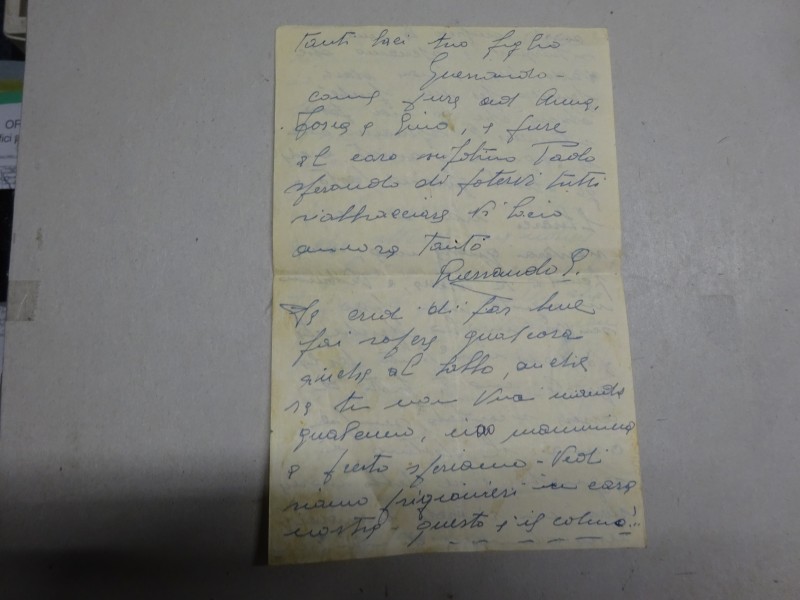 Tanti baci tuo figlio
Guerrando -
come pure ad Anna,
Tosca e Gino, e pure
al caro nipotino Paolo
sperando di potervi tutti
riabbracciare Vi bacio
ancora tanto
Guerrando P.
Se credi di far bene
fai sapere qualcosa
anche al babbo, anche
se tu non vuoi manda
qualcuno, ciao mammina
e presto speriamo - Vedi
siamo prigionieri in casa
nostra - questo è il colmo!!
OF
fici